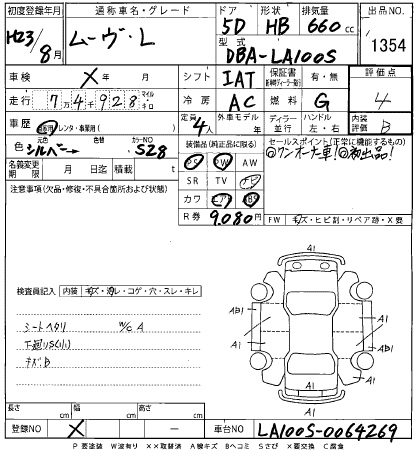 初度登録年月 通称車名・グレード ドア 形状 排気量 出品NO.
H23/8月 ムーヴ・L 5D HB 660cc 1354
型式 DBA-LA100S
車検 X 年 月 シフト IAT 保証書 有・無 評価点 4
走行 74928 マイル キロ 冷房 AC 燃料 G 内装評価 B
車歴 自家用・レンタ・事業用( ) 定員 4人 外車モデル 年 ディーラー・並行 ハンドル 左・右
色 元色 シルバー 色替 カラーNO S28 装備品(純正品に限る) セールスポイント(正常に機能するもの)
◎ワンオーナー車! ◎初出品!
名義変更期限 月 日迄 積載 t
PS PW AW
注意事項(欠品・修復・不具合箇所および状態)
SR TV ナビ
カワ エアB ABS
R券 9.080円
FW キズ・ヒビ割・リペア跡・X要
検査員記入 内装 キズ・汚レ・コゲ・穴・スレ・キレ
シートヘタリ W/C A
下廻りS(小)
キズB
A1
AB1 AB1
A1 A1
A1
長さ cm 幅 cm 高さ cm
登録NO X — 車台NO LA100S-0064269
P要塗装 W波有り XX取替済 A線キズ Bヘコミ Sさび X要交換 C腐食